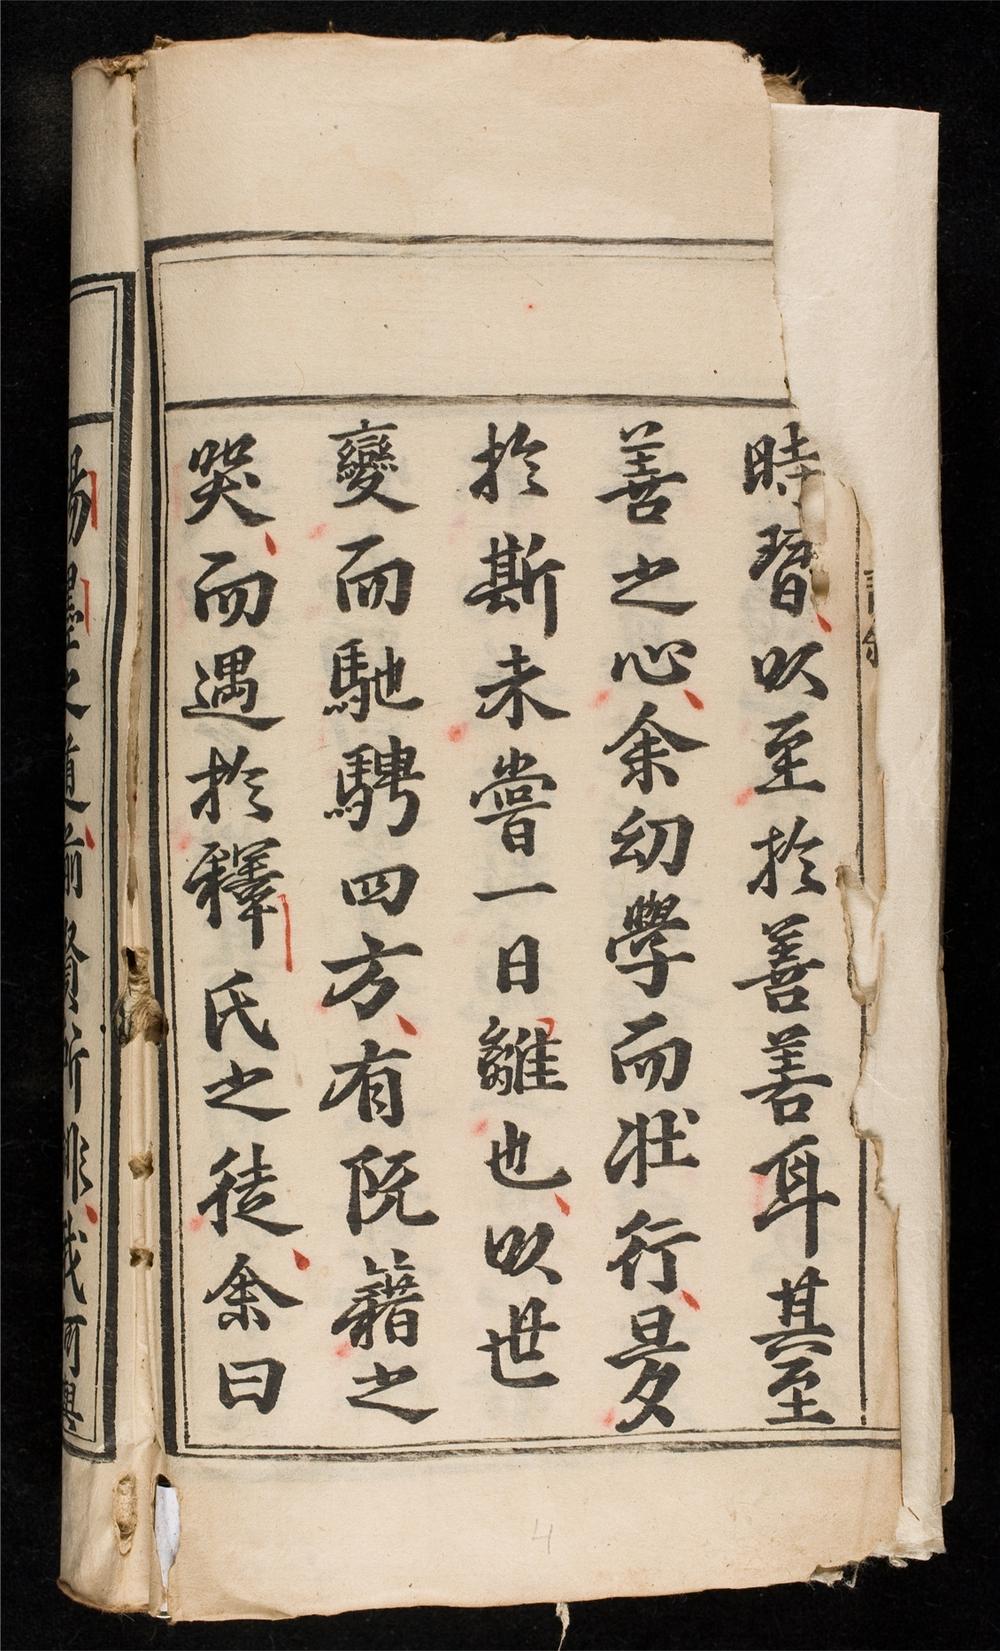 時習以至於善善耳其至
善之心余幼學而壯行旦夕
於斯未嘗一日離也以世
變而馳騁四方有阮籍之
哭而遇於釋氏之徒余曰
楊墨之道前賢所非我何與
4